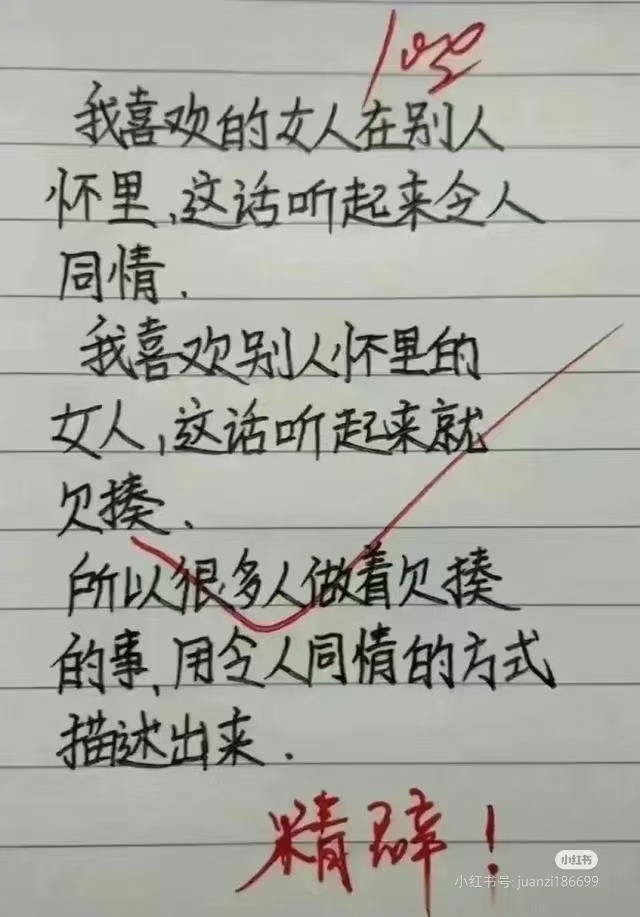 100
我喜欢的女人在别人
怀里,这话听起来令人
同情.
我喜欢别人怀里的
女人,这话听起来就
欠揍.
所以很多人做着欠揍
的事,用令人同情的方式
描述出来.
精辟!
小红书
小红书号: juanzi186699